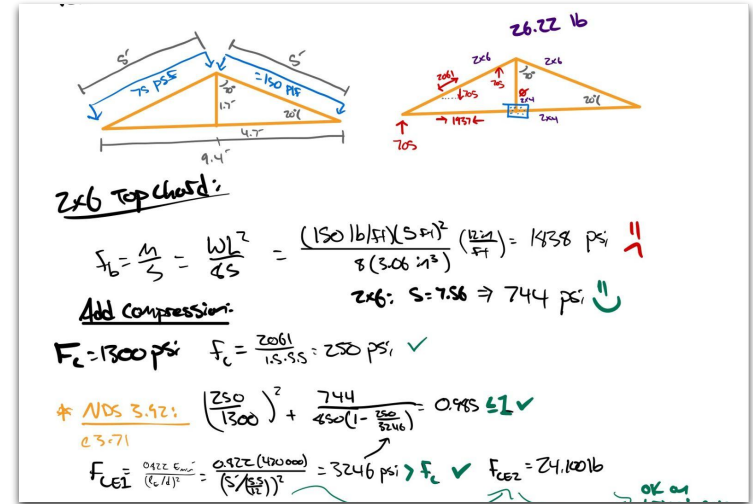 26.22 lb
5' 5'
75 PSF =150 PLF
70° 1.7' 20°
4.7'
9.4'
2x6 2x6
2061 705 705 70°
2x4 20°
→ 1937 ← 2x4
705
2x6 Top Chord:
f_b = M/S = WL²/8S = (150 lb/ft)(5 ft)²/8(3.06 in³) (12in/ft) = 1838 psi
2x6: S=7.56 ⇒ 744 psi
Add compression:
F_c=1300psi f_c = 2061/1.5·5.5 = 250 psi ✓
* NDS 3.92: (250/1300)² + 744/850(1-250/3246) = 0.985 ≤1 ✓
@3.71
F_CE1 = 0.822 E_min/(l_e/d)² = 0.822(430000)/(5'/(5.5/12))² = 3246 psi > f_c ✓ F_CE2 = 24,100lb
OK on